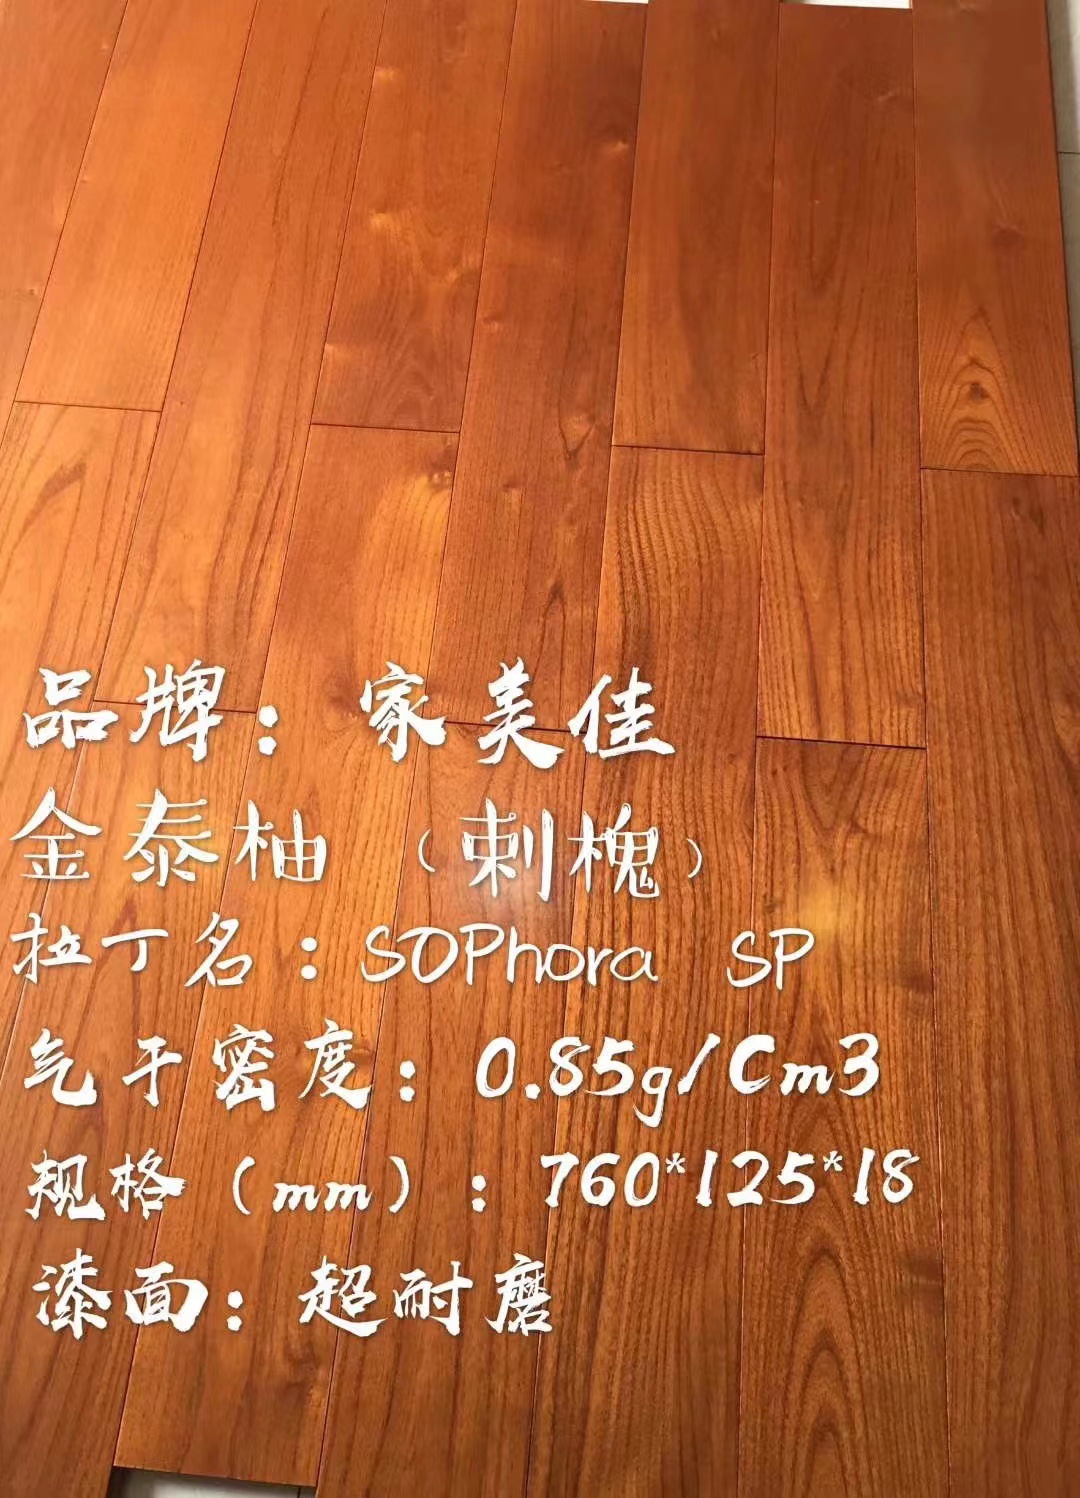 品牌：家美佳
金泰柚（刺槐）
拉丁名：SOPhora SP
气干密度：0.85g/Cm3
规格（mm）：760*125*18
漆面：超耐磨